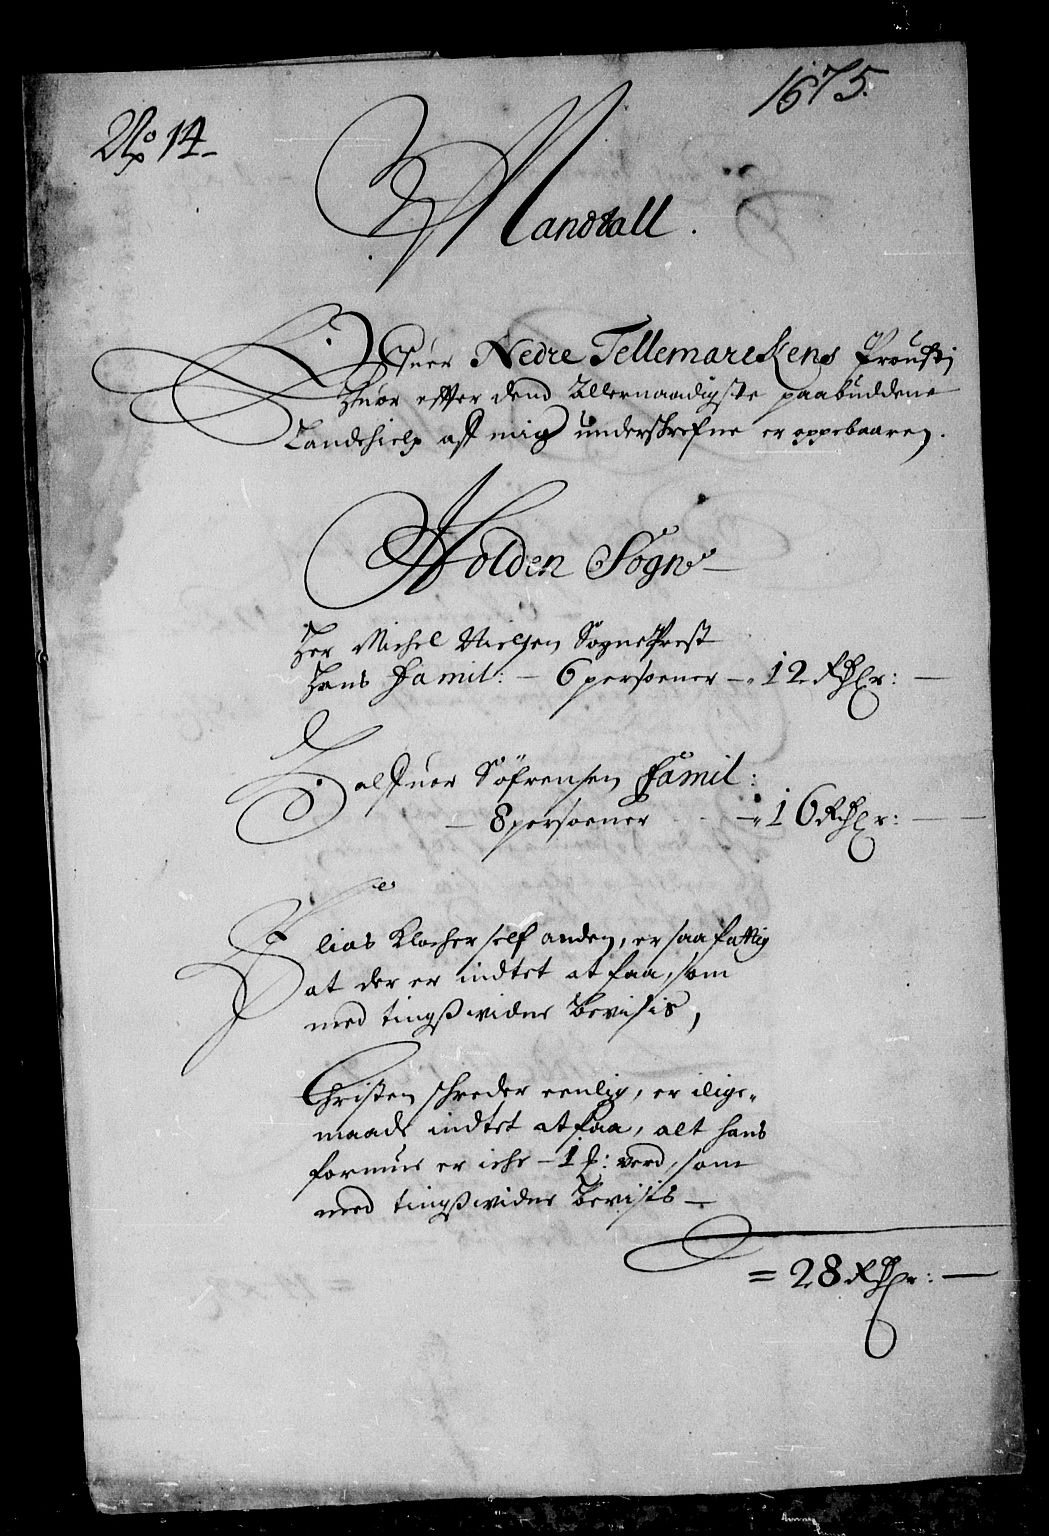 1675.
No 14
Mandtall.
Ofuer Nedre Tellemarckens Proustj
Huor efter dend Allernaadigste paabuddene
Landehielp aff mig underskrefne er oppebaaren.
Holden Sogn
Her Michel Nielsen SognePrest
Hans Famil: – 6 persoener – 12 Rdlr: –
Halfuor Söfrensen Famil:
– 8 persoener – 16 Rdlr: –
Elias Klocher self anden, er saa fattig
at der er indtet at faa, som
med tingsswidne bevisis,
Christen schreder eenlig, er ilige-
maade indtet at faa, alt hans
formue er iche – 1 verd, som
med tingsswidne bevisis –
= 28 Rdlr: –